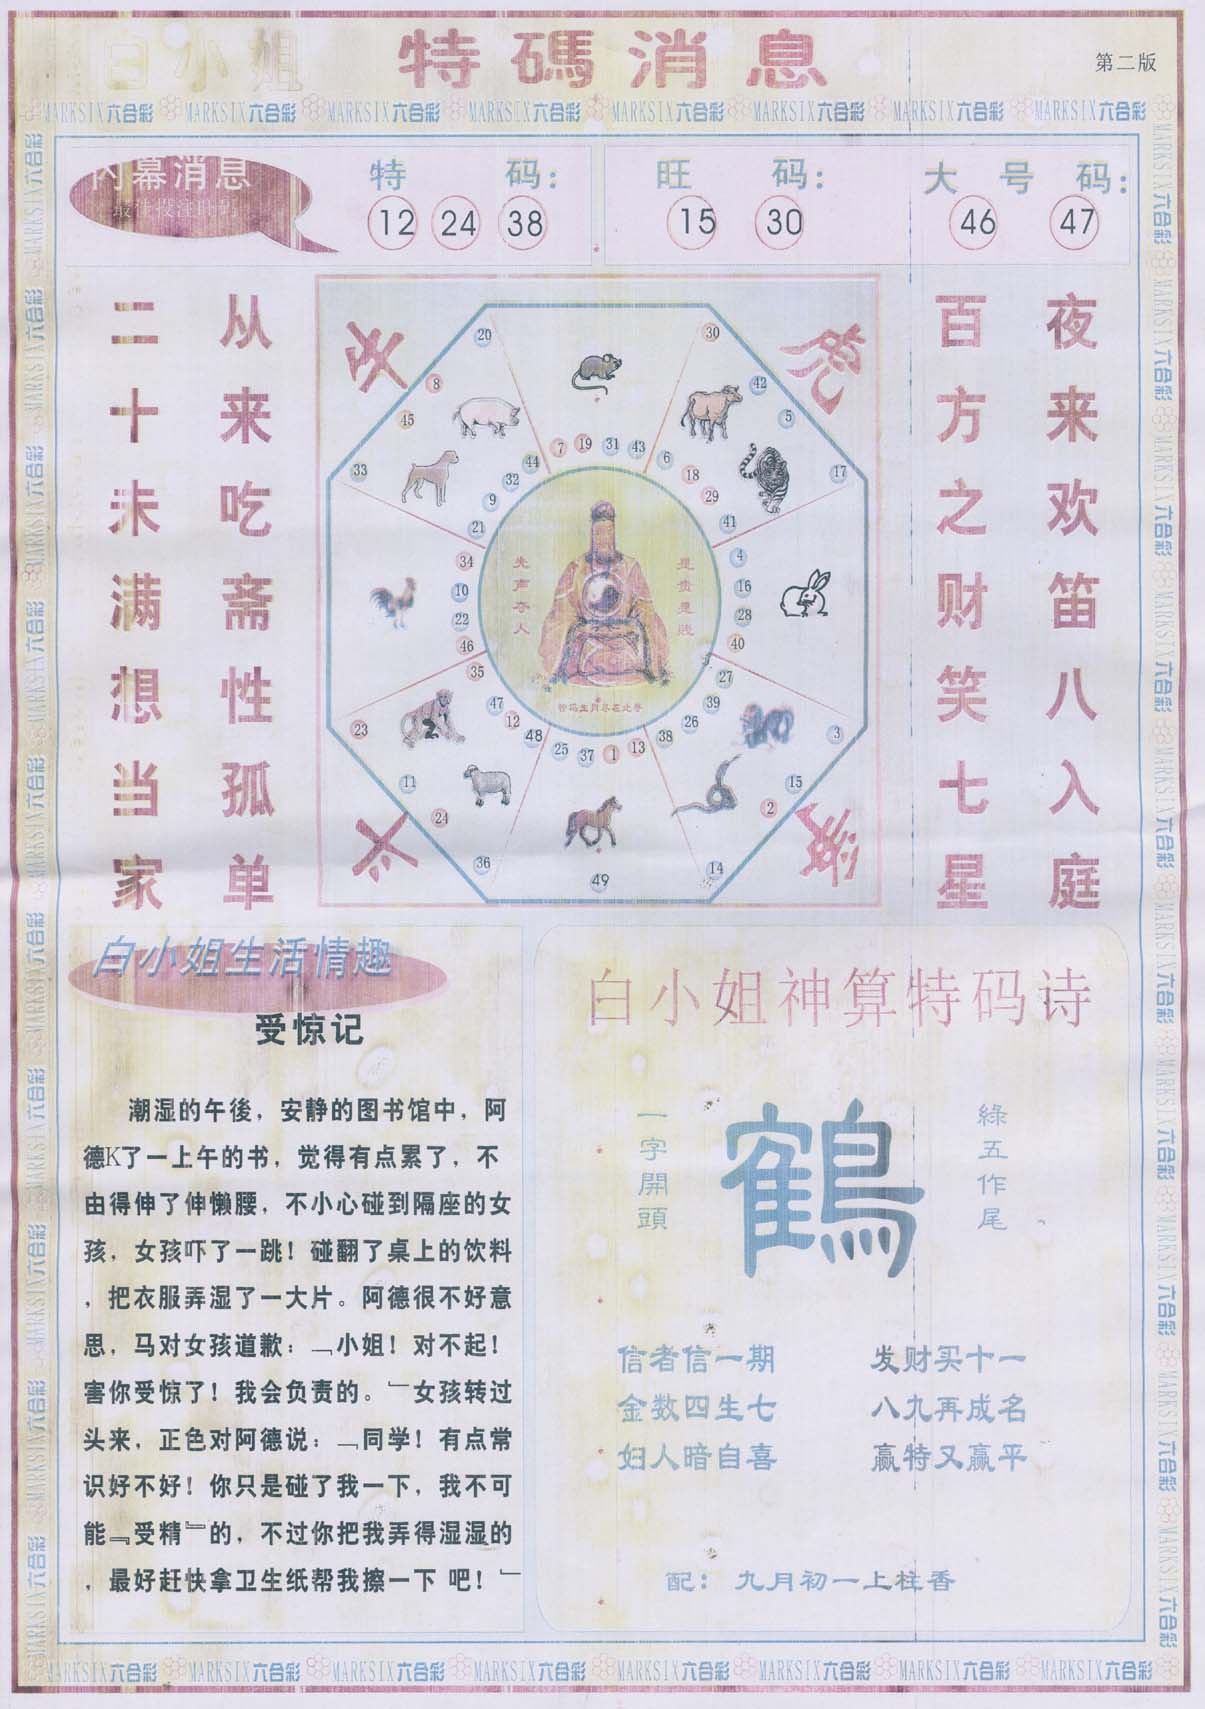 白小姐 特碼消息
第二版
MARKSIX六合彩 MARKSIX六合彩 MARKSIX六合彩 MARKSIX六合彩 MARKSIX六合彩 MARKSIX六合彩 MARKSIX六合彩 MARKSIX六合彩
内幕消息
特 码：
12 24 38
旺 码：
15 30
大 号 码：
46 47
从来吃斋性孤单
二十未满想当家
夜来欢笛八入庭
百方之财笑七星
虎
20 30
8 42
45 5
33 17
7 19 31 43
44 6
32 18
9 29
21 41
34 4
10 16
22 28
46 40
35 27
47 39
12 26
48 38
25 37 1 13
23 3
11 15
24 2
36 14
49
先声夺人
是贵是贱
特码生肖尽在此卷
白小姐生活情趣
受惊记
潮湿的午後，安静的图书馆中，阿
德K了一上午的书，觉得有点累了，不
由得伸了伸懒腰，不小心碰到隔座的女
孩，女孩吓了一跳！碰翻了桌上的饮料
，把衣服弄湿了一大片。阿德很不好意
思，马对女孩道歉：﹁小姐！对不起！
害你受惊了！我会负责的。﹂女孩转过
头来，正色对阿德说：﹁同学！有点常
识好不好！你只是碰了我一下，我不可
能﹃受精﹄的，不过你把我弄得湿湿的
，最好赶快拿卫生纸帮我擦一下 吧！﹂
白小姐神算特码诗
一字開頭
鶴
綠五作尾
信者信一期 发财买十一
金数四生七 八九再成名
妇人暗自喜 赢特又赢平
配：九月初一上柱香
MARKSIX六合彩 MARKSIX六合彩 MARKSIX六合彩 MARKSIX六合彩 MARKSIX六合彩 MARKSIX六合彩 MARKSIX六合彩 MARKSIX六合彩